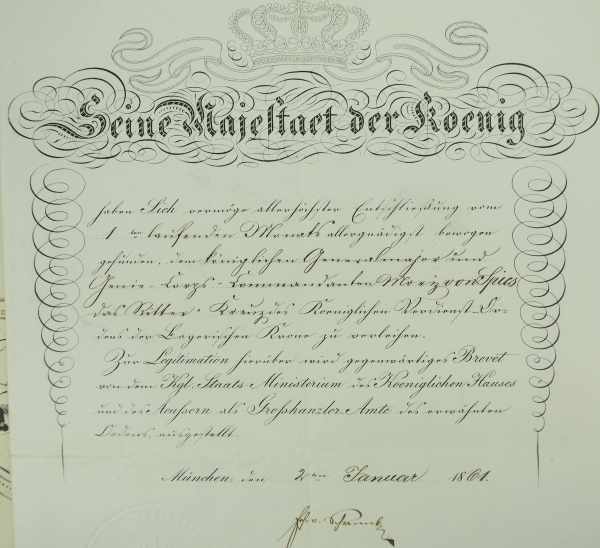 Seine Majestaet der Koenig
haben Sich vermöge allerhöchster Entschließung vom
1ten laufenden Monats allergnädigst bewogen
gefunden, dem königlichen Generalmajor und
Genie-Corps-Commandanten Moriz von Spies
das Ritter-Kreuz des Koeniglichen Verdienst-Or-
dens der Bayerischen Krone zu verleihen.
Zur Legitimation hierüber wird gegenwärtiges Brevet
von dem Kgl. Staats-Ministerium des Koeniglichen Hauses
und des Aeussern als Großkanzler-Amte des erwähnten
Ordens, ausgestellt.
München, den 2ten Januar 1861.